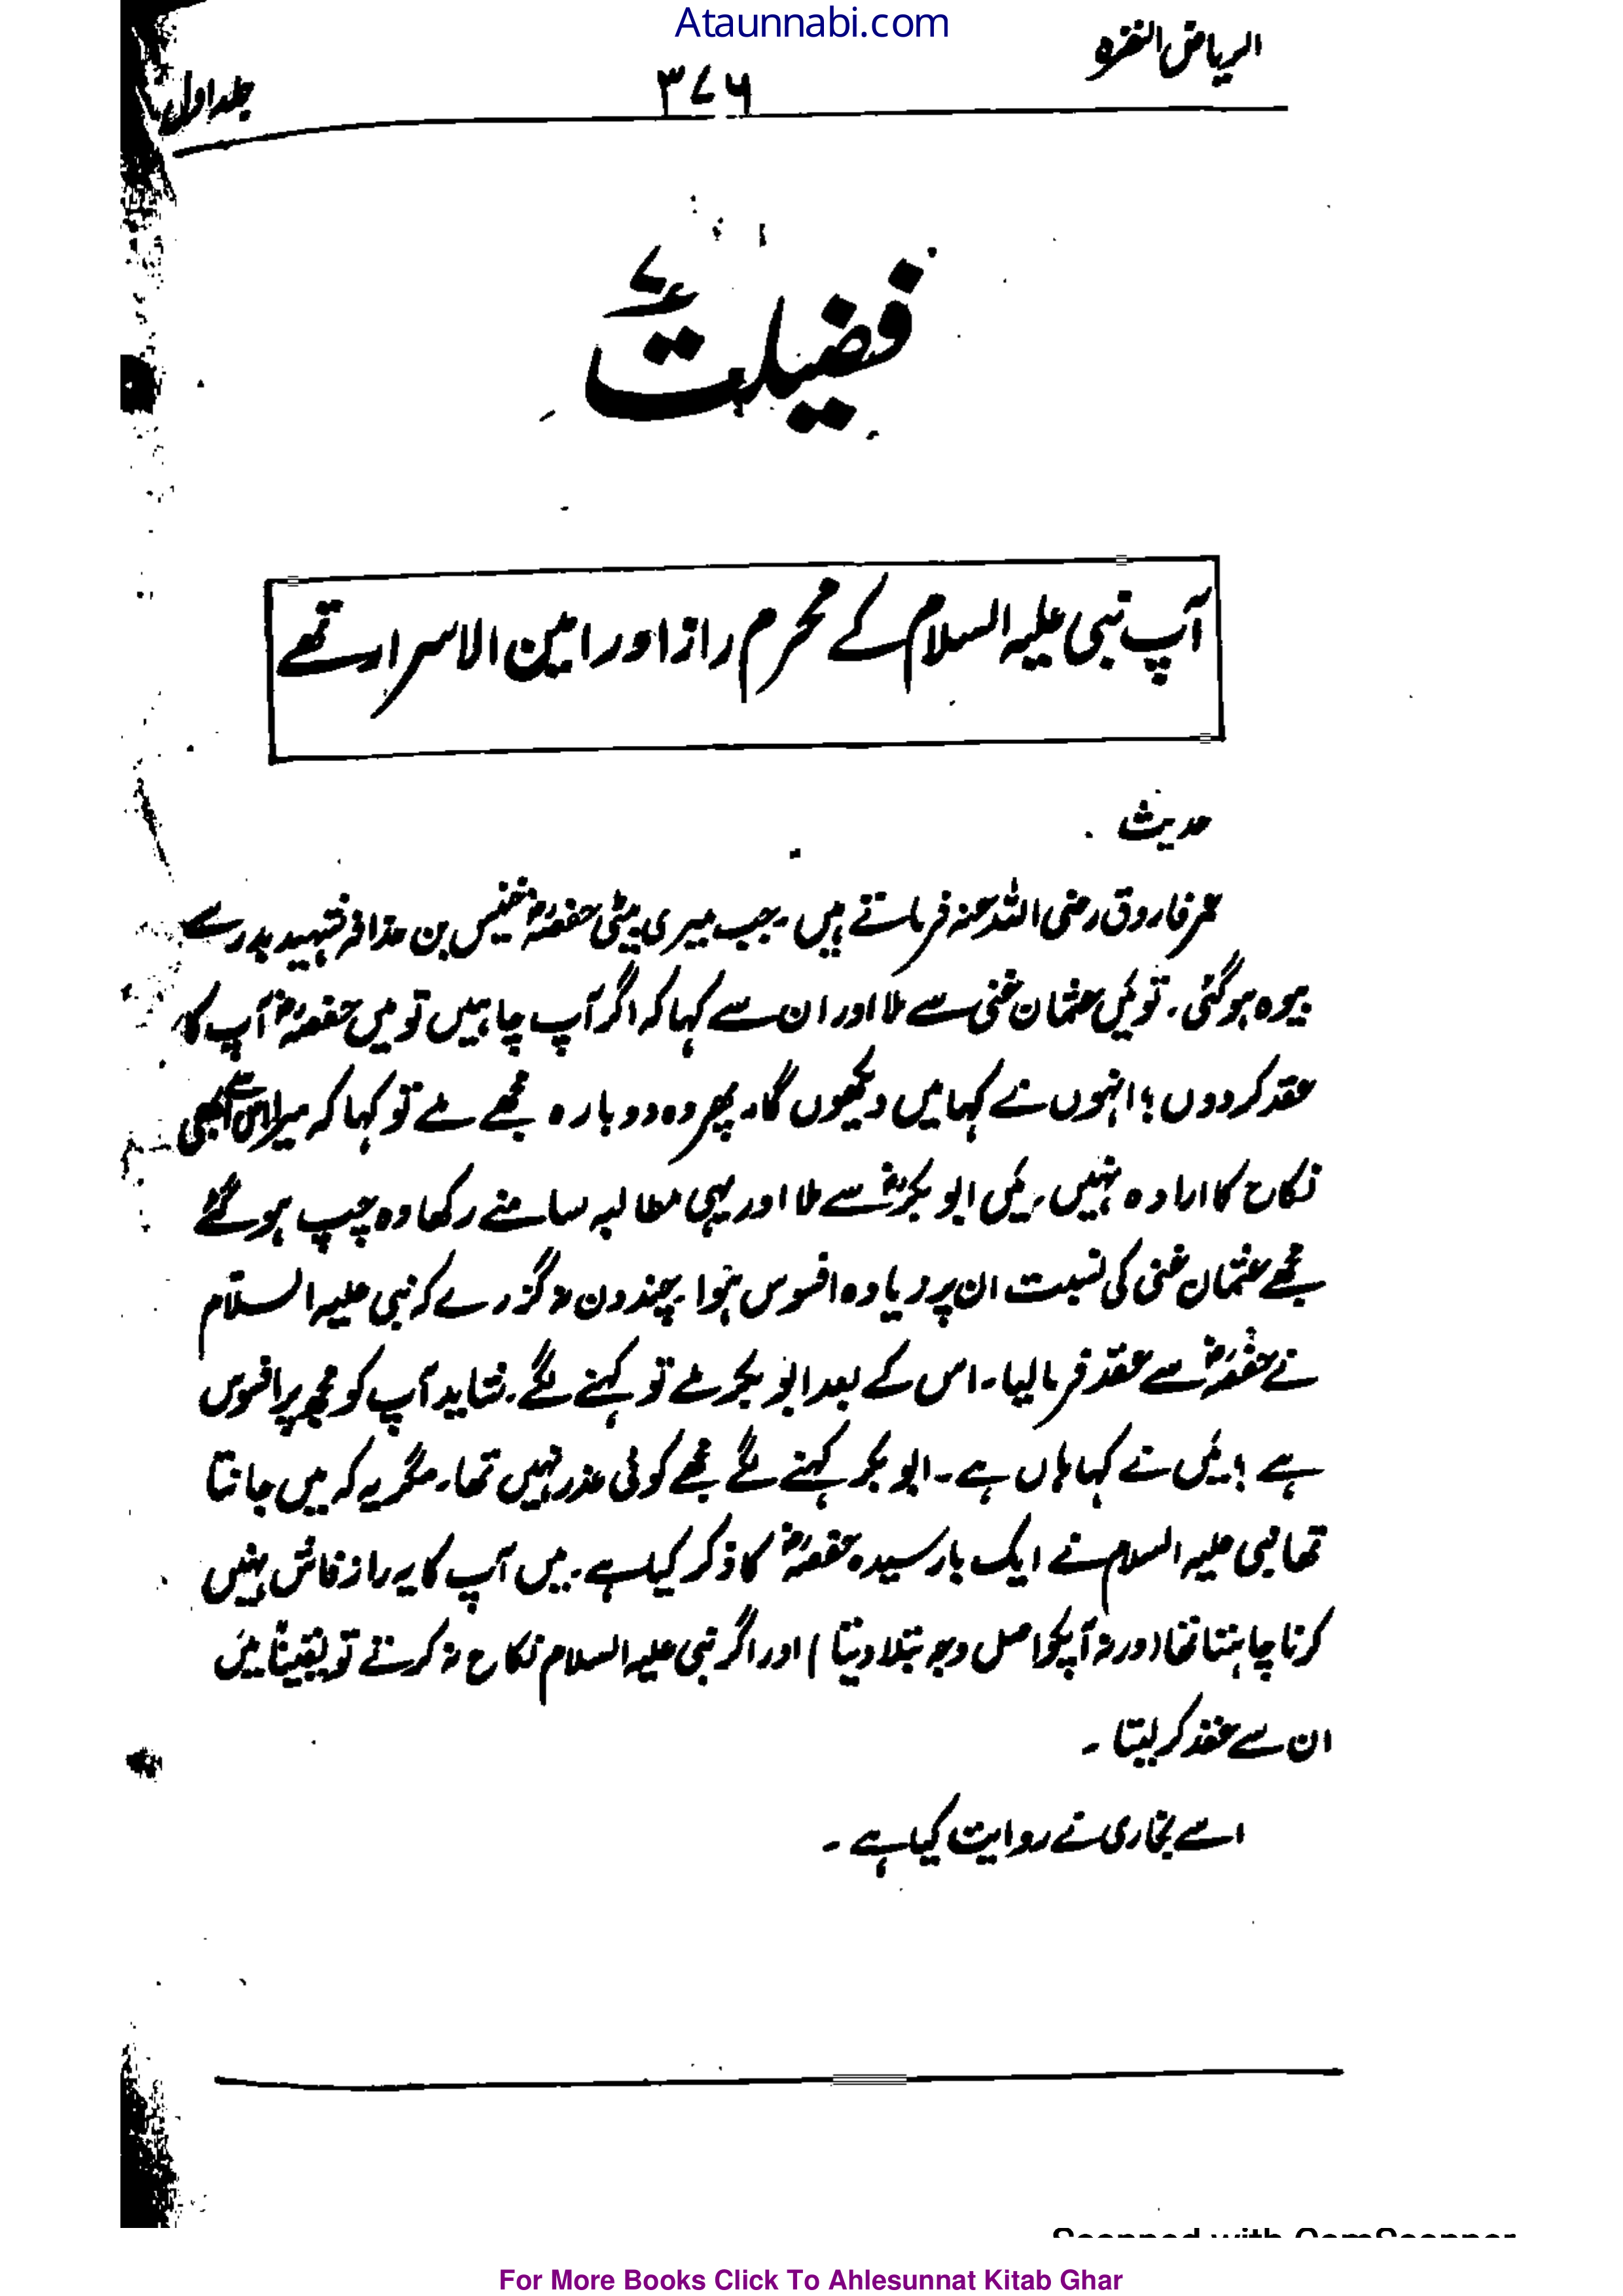 Ataunnabi.com
الریاض النضرہ
۳۷۶
جلد اول
فضیلت
آپ نبی علیہ السلام کے محرم راز اور امین الاسرار تھے
حدیث
عمر فاروق رضی اللہ عنہ فرماتے ہیں ۔ جب میری بیٹی حفصہؓ خنیس بن حذافہ شہید بدر سے
بیوہ ہو گئی ۔ تو میَں عثمان غنی سے ملا اور ان سے کہا کہ اگر آپ چاہیں تو میں حفصہؓ آپ کا
عقد کر دوں ؛ انہوں نے کہا میں دیکھوں گا ۔ پھر وہ دوبارہ مجھے ملے تو کہا کہ میرا اس سے ابھی
نکاح کا ارادہ نہیں ۔ میَں ابوبکرؓ سے ملا اور یہی مطالبہ سامنے رکھا وہ چپ ہو گئے
مجھے عثمان غنی کی نسبت ان پر زیادہ افسوس ہوُا ۔ چند دن نہ گزرے کہ نبی علیہ السلام
نے حفصہؓ سے عقد فرما لیا ۔ اس کے بعد ابوبکر ملے تو کہنے لگے ۔ شاید آپ کو مجھ پر افسوس
ہے ؛ میَں نے کہا ہاں ہے ۔ ابوبکر کہنے لگے مجھے کوئی عذر نہیں تھا ۔ مگر یہ کہ میں جانتا
تھا نبی علیہ السلام نے ایک بار سیدہ حفصہؓ کا ذکر کیا ہے ۔ میں آپ کا یہ راز فاش نہیں
کرنا چاہتا تھا (ورنہ آپکو اصل وجہ بتلا دیتا) اور اگر نبی علیہ السلام نکاح نہ کرتے تو یقیناً میَں
ان سے عقد کر لیتا ۔
اسے بخاری نے روایت کیا ہے ۔
Scanned with CamScanner
For More Books Click To Ahlesunnat Kitab Ghar